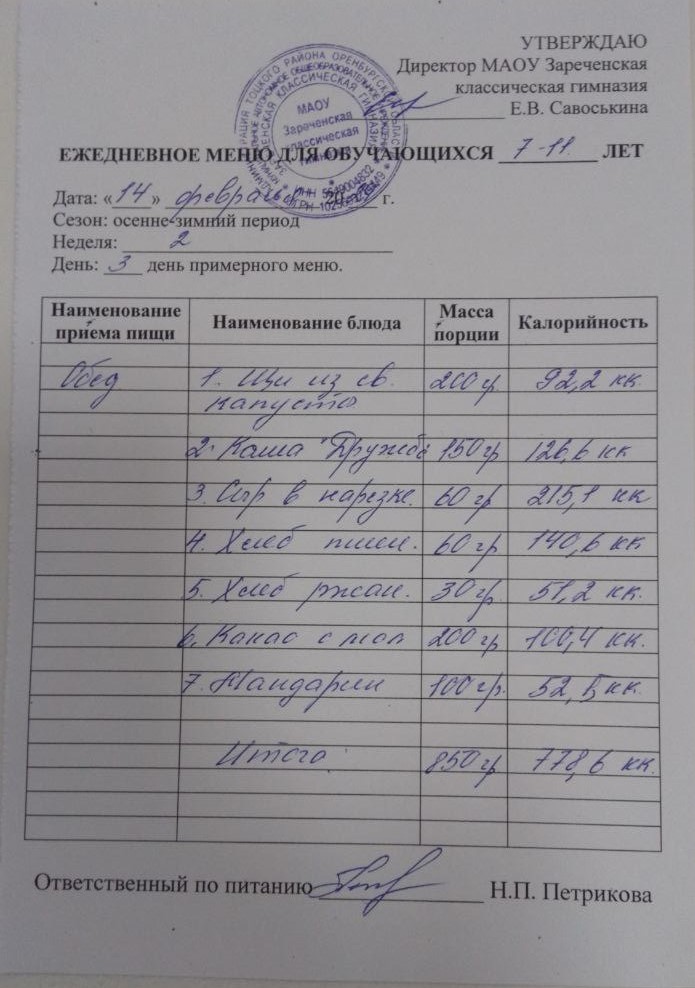 УТВЕРЖДАЮ
Директор МАОУ Зареченская
классическая гимназия
Е.В. Савоськина
МАОУ
Зареченская
классическая
гимназия
ЕЖЕДНЕВНОЕ МЕНЮ ДЛЯ ОБУЧАЮЩИХСЯ 7-11 ЛЕТ
Дата: «14» февраля 20 г.
Сезон: осенне-зимний период
Неделя: 2
День: 3 день примерного меню.
Наименование приема пищи Наименование блюда Масса порции Калорийность
Обед 1. Щи из св. 200 гр. 92,2 кк.
капусты
2. Каша "Дружба 150 гр 126,6 кк
3. Сыр в нарезке. 60 гр 215,1 кк
4. Хлеб пшен. 60 гр 140,6 кк
5. Хлеб ржан. 30 гр. 51,2 кк.
6. Какао с мол 200 гр 100,4 кк.
7. Мандарин 100 гр. 52,5 кк.
Итого 850 гр 778,6 кк.
Ответственный по питанию Н.П. Петрикова